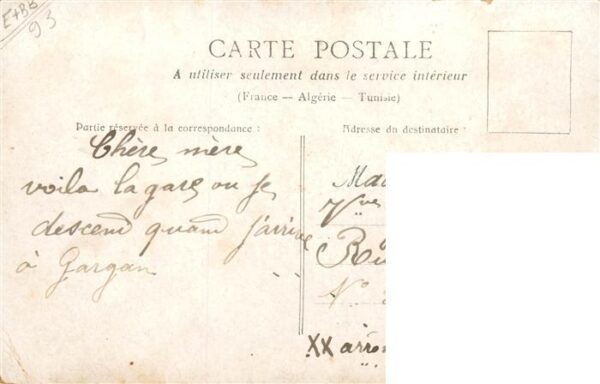 E+BB
93
CARTE POSTALE
A utiliser seulement dans le service intérieur
(France — Algérie — Tunisie)
Partie réservée à la correspondance :
Chère mère
voila la gare ou je
descend quand j'arrive
à Gargan
Adresse du destinataire :
Mad
Vve
N°
XX arron